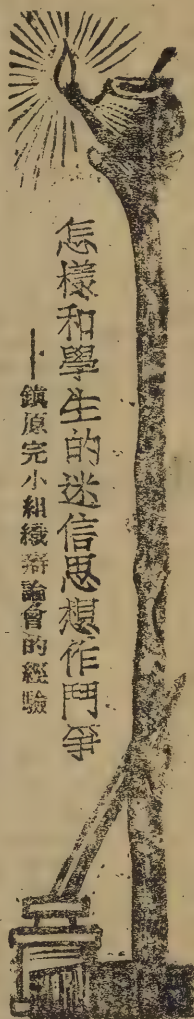 怎樣和學生的迷信思想作鬥爭
——鎮原完小組織辯論會的經驗